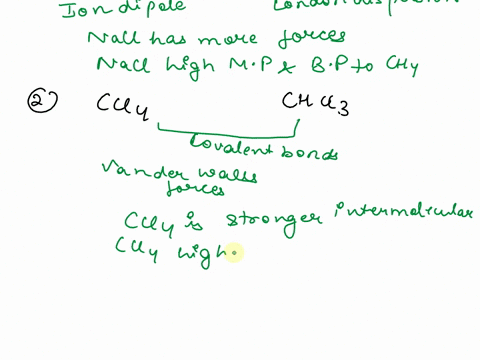 Ion dipole London dispersion
Nacl has more forces
Nacl high M.P & B.P to CH4
② CCl4 CHCl3
Covalent bonds
Vander walss
forces
CCl4 is stronger intermolicular
CCl4 high